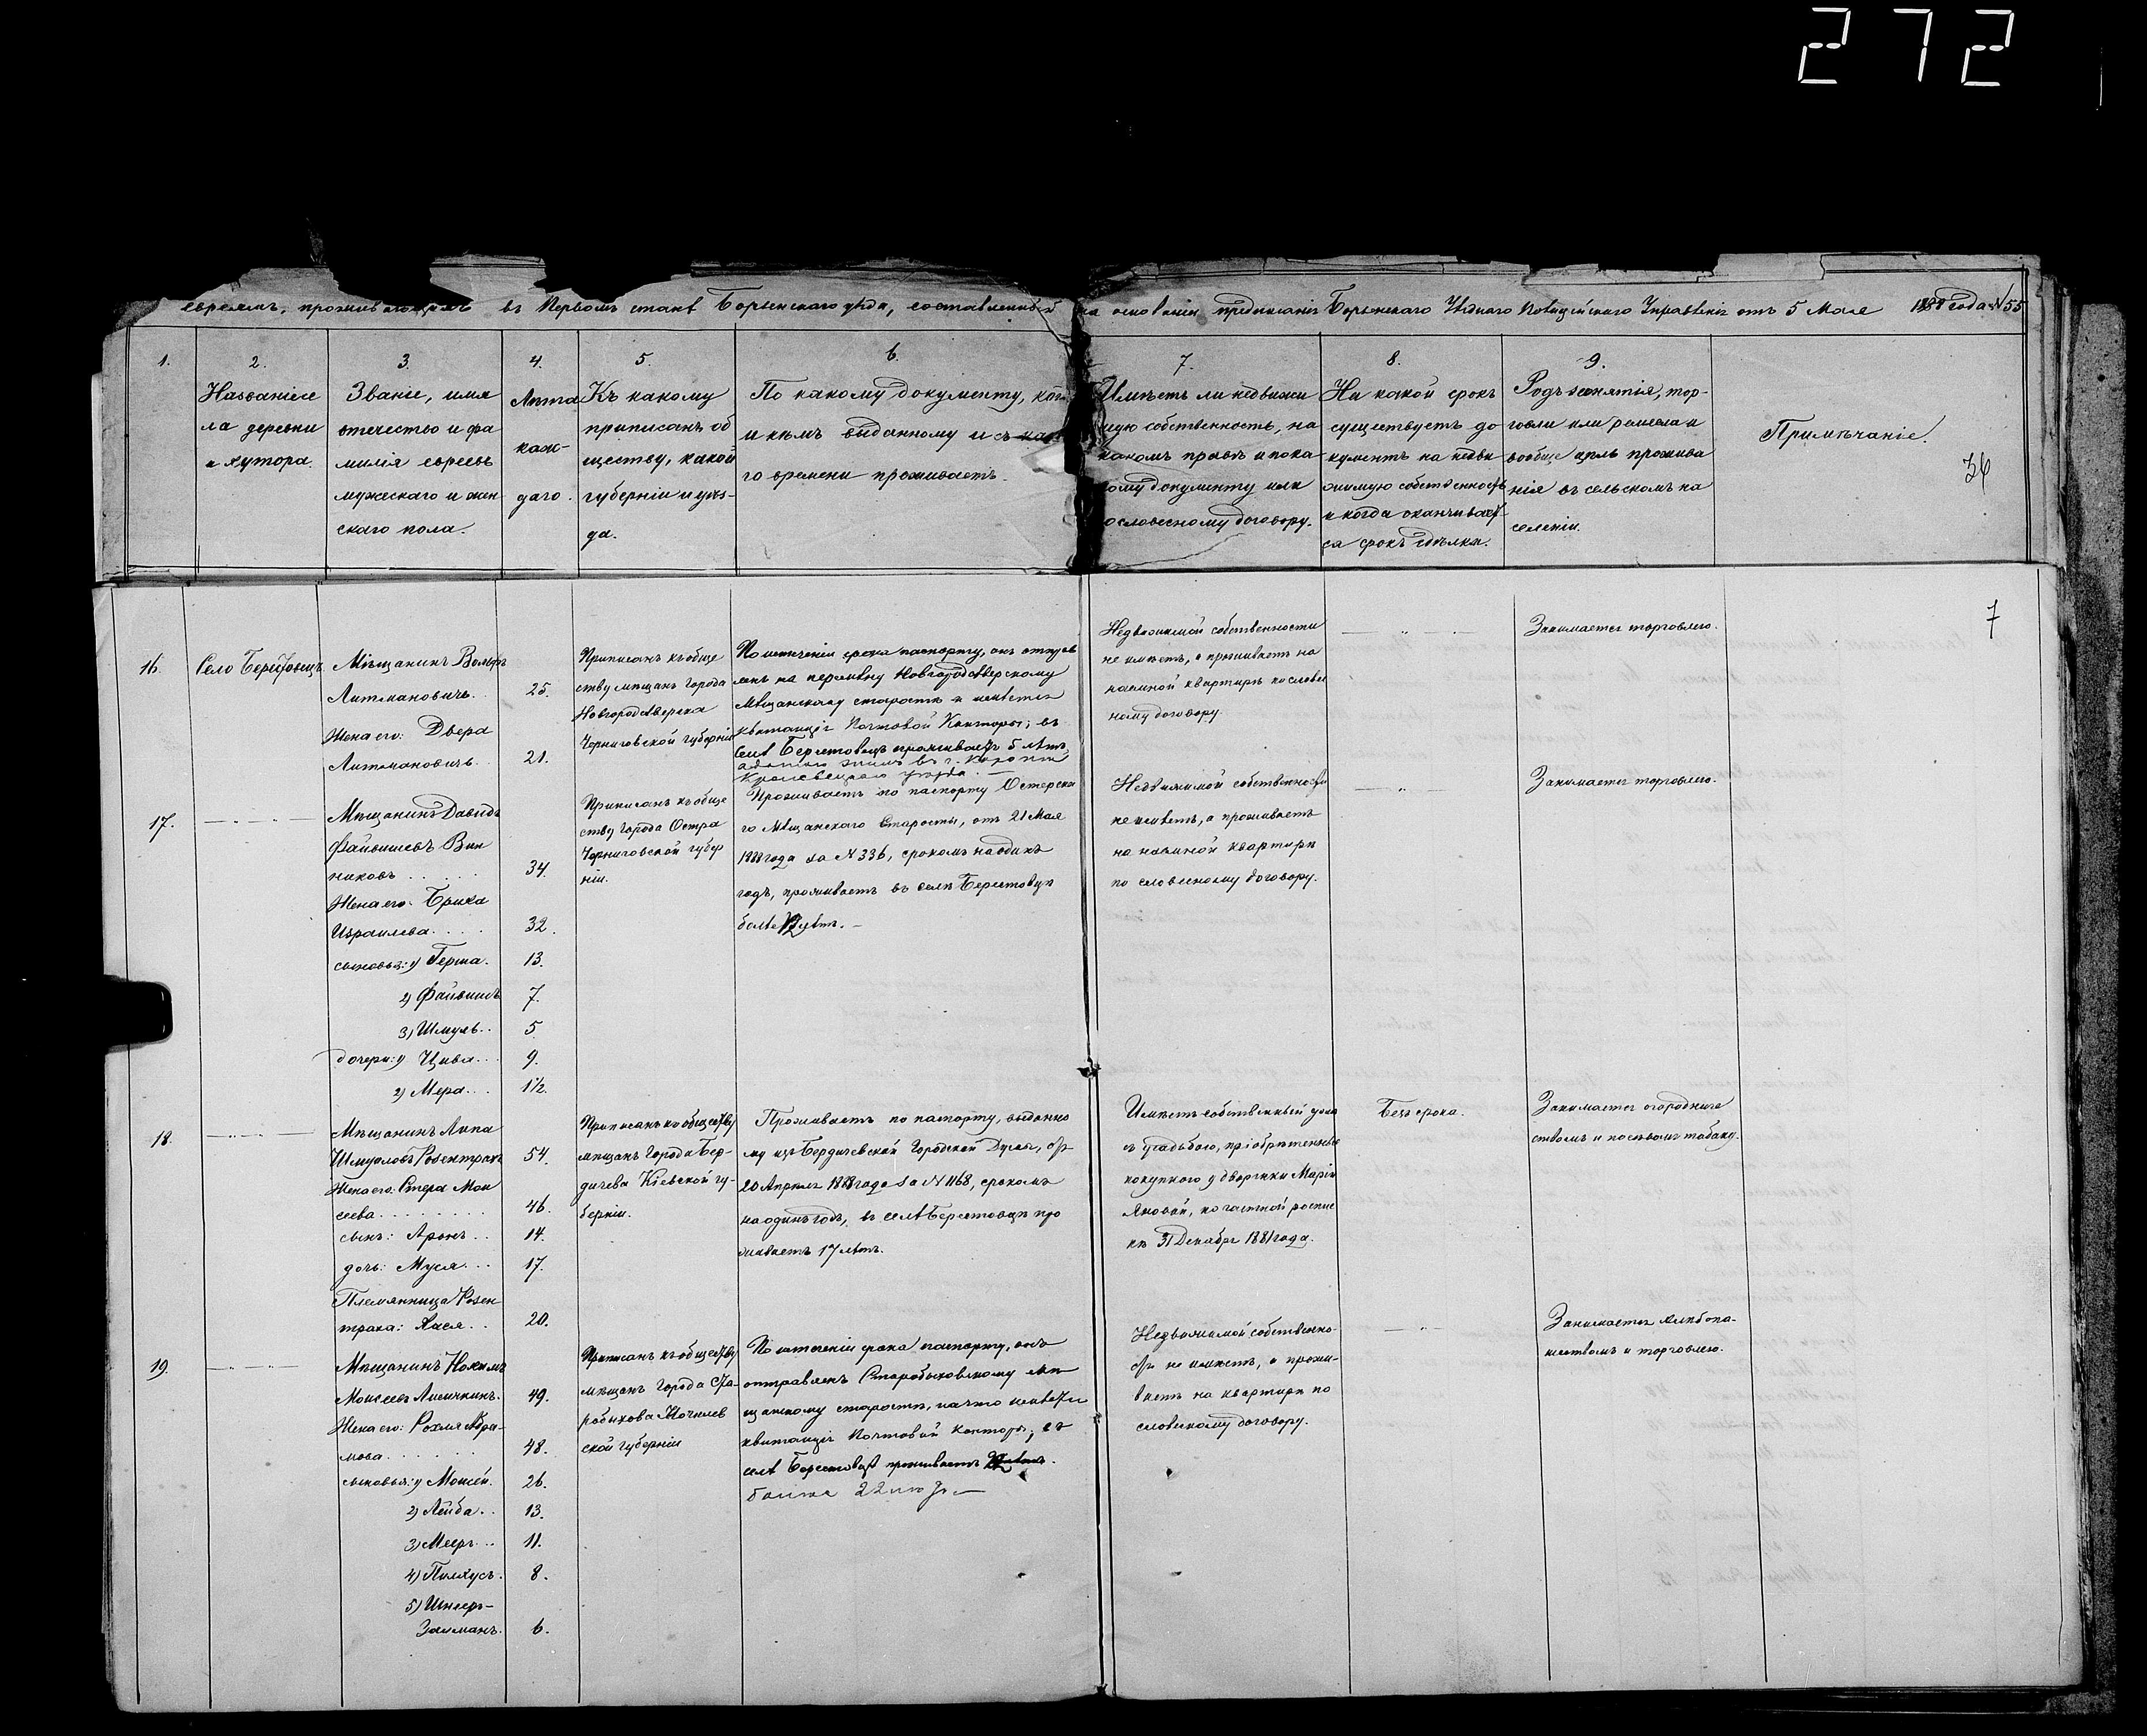 272
евреямъ, проживающимъ въ Первомъ станѣ Борзенскаго уѣзда, составленный на основаніи предписанія Борзенскаго Уѣзднаго Полицейскаго Управленія отъ 5 Мая 1888 года № 55
1.
2.
Названіе се
ла деревни
и хутора.
3.
Званіе, имя
отчество и фа
милія евреевъ
мужескаго и жен
скаго пола.
4.
Лѣта
каж-
даго.
5.
Къ какому
приписанъ об
ществу, какой
губерніи и уѣз-
да.
6.
По какому документу,
и кѣмъ выданному и съ
го времени проживаетъ.
7.
Имѣетъ ли недвижи
мую собственность, на
какомъ правѣ и по ка
кому документу или
словесному договору.
8.
На какой срокъ
существуетъ до
кументъ на недви
жимую собственность
и когда оканчивает
ся срокъ сдѣлки.
9.
Родъ занятія, тор-
говли или ремесла и
вообще цѣль прожива
нія въ сельскомъ на
селеніи.
Примѣчаніе.
36
7
16.
Село Берестовецъ
Мѣщанинъ Вольфъ
Литмановичъ.
25.
Жена его: Двера
Литмановичъ.
21.
Приписанъ къ обще
ству мѣщанъ Города
Новгородсѣверска
Черниговской губерніи
По истеченіи срока паспорту, онъ отправ
ленъ на перемѣну Новгородсѣверскому
Мѣщанскому старостѣ и имѣется
квитанція Почтовой Конторы; въ
селѣ Берестовецъ проживаетъ 5 лѣтъ,
жилъ въ г. Коропѣ
Кролевецкаго уѣзда. —
Недвижимой собственности
не имѣетъ, а проживаетъ на
наемной квартирѣ по словес
ному договору.
— „ —
Занимается торговлею.
17.
— „ —
Мѣщанинъ Давидъ
Файвишевъ Вин
никовъ . . . . .
34.
Жена его: Брика
Израилева. . . .
32.
сыновья: 1) Герша.
13.
2) Файвишъ
7.
3) Шмуль. .
5
дочери: 1) Цивя. . .
9.
2) Мера. . .
1½.
Приписанъ къ обще
ству Города Остра
Черниговской губер
ніи.
Проживаетъ по паспорту Остерска
го Мѣщанскаго Старосты, отъ 21 Мая
1888 года за № 336, срокомъ на одинъ
годъ, проживаетъ въ селѣ Берестовцѣ
болѣе 12 лѣтъ. —
Недвижимой собственности
не имѣетъ, а проживаетъ
на наемной квартирѣ
по словесному договору.
— „ —
Занимается торговлею.
18.
— „ —
Мѣщанинъ Липа
Шмуловъ Розентрахъ
54.
Жена его: Стера Мои
сеева. . . . . . . .
46.
сынъ: Аронъ. .
14.
дочь: Муся. . .
17.
Племянница Розен
траха: Хася. .
20.
Приписанъ къ обществу
мѣщанъ Города Бер-
дичева Кіевской гу-
берніи.
Проживаетъ по паспорту, выданно
му изъ Бердичевской Городской Думы, отъ
20 Апрѣля 1888 года за № 1168, срокомъ
на одинъ годъ, въ селѣ Берестовцѣ про
живаетъ 17 лѣтъ.
Имѣетъ собственный домъ
съ усадьбою, пріобрѣтенные
покупкою у дворянки Маріи
Яновой, по частной роспис
кѣ 31 Декабря 1881 года.
Безъ срока.
Занимается огородниче
ствомъ и посѣвомъ табаку.
19.
— „ —
Мѣщанинъ Нохимъ
Моисеевъ Лисичкинъ.
49.
Жена его: Рохля Абра-
мова. . . . .
48.
сыновья: 1) Моисей.
26.
2) Лейба. .
13.
3) Мееръ. . .
11.
4) Пинхусъ.
8.
5) Шнееръ-
Залманъ.
6.
Приписанъ къ обществу
мѣщанъ Города Ста-
робыхова Могилев
ской губерніи
По истеченіи срока паспорту, онъ
отправленъ Старобыховскому мѣ
щанскому старостѣ, на что имѣется
квитанція Почтовой конторы, въ
селѣ Берестовцѣ проживаетъ
болѣе 22 лѣтъ —
Недвижимой собственно-
сти не имѣетъ, а прожи-
ваетъ на квартирѣ по
словесному договору.
— „ —
Занимается хлѣбопа-
шествомъ и торговлею.